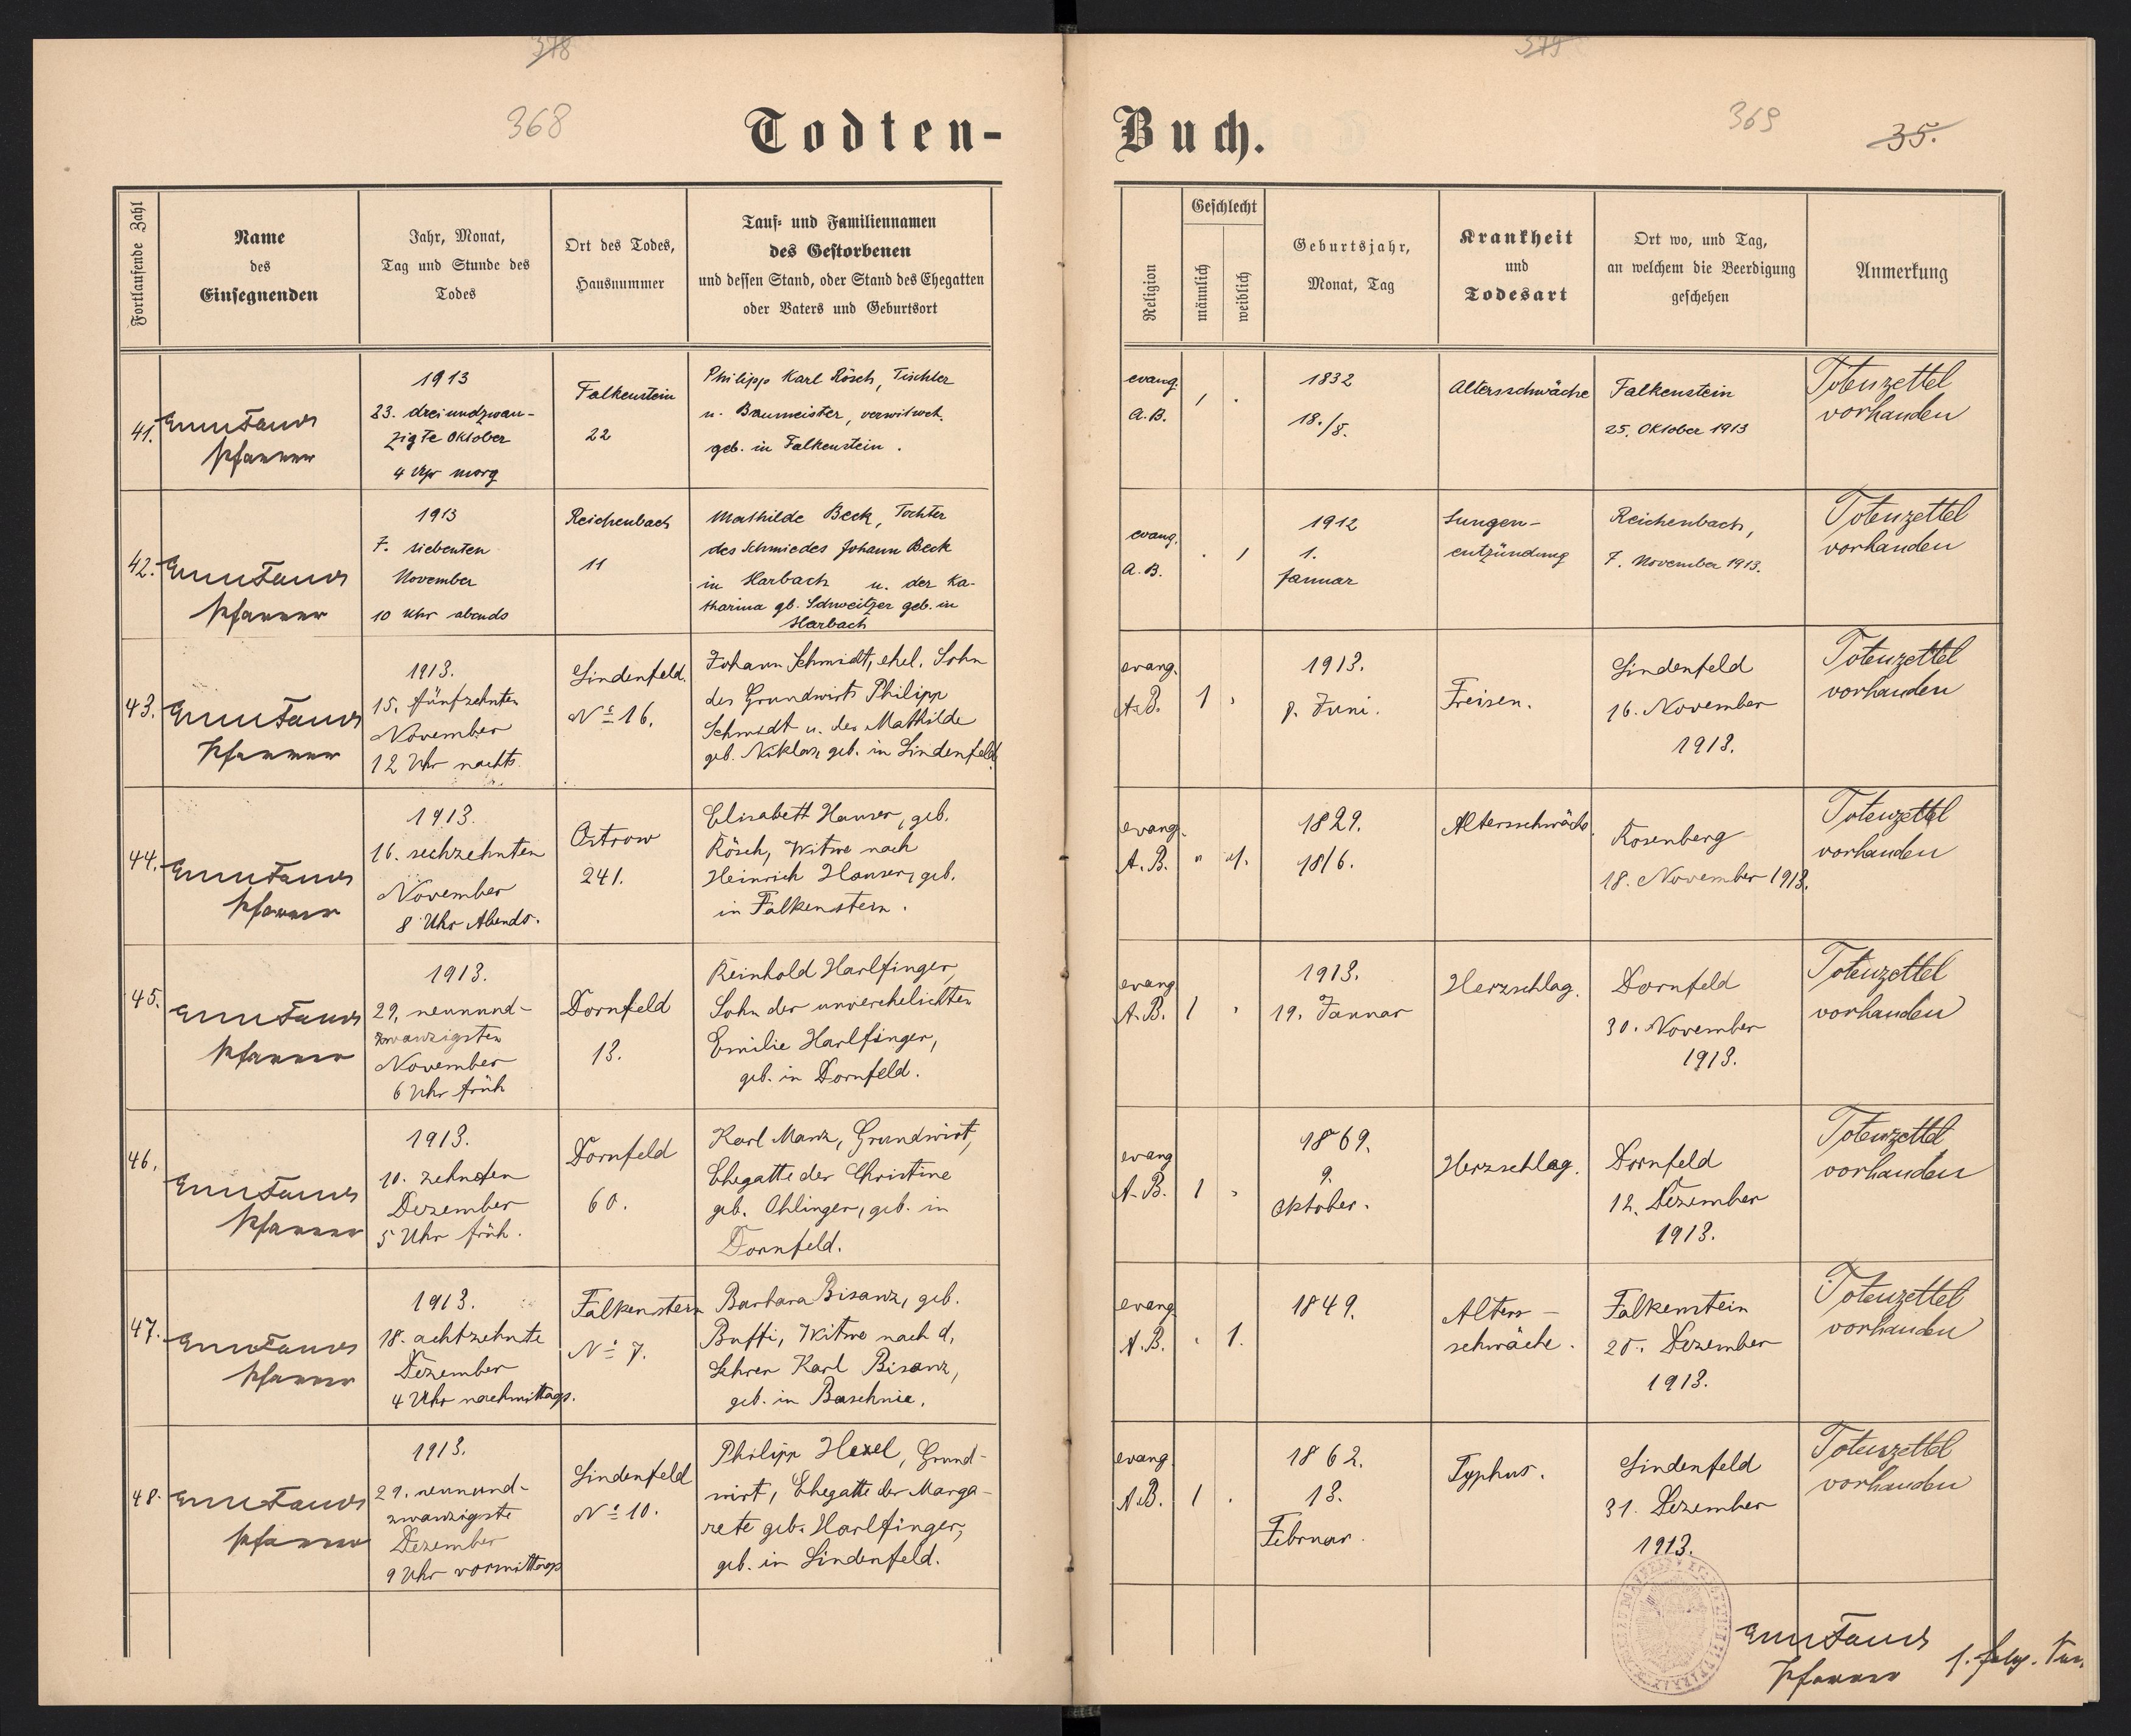 378
379
368
369
35.
Todten-
Buch.
Fortlaufende Zahl
Name
des
Einsegnenden
Jahr, Monat,
Tag und Stunde des
Todes
Ort des Todes,
Hausnummer
Tauf- und Familiennamen
des Gestorbenen
und dessen Stand, oder Stand des Ehegatten
oder Vaters und Geburtsort
Religion
Geschlecht
männlich
weiblich
Geburtsjahr,
Monat, Tag
Krankheit
und
Todesart
Ort wo, und Tag,
an welchem die Beerdigung
geschehen
Anmerkung
41.
Pfarrer
1913
23. dreiundzwan-
zigte Oktober
4 Uhr morg
Falkenstein
22
Philipp Karl Rösch, Tischler
u. Baumeister, verwitwet.
geb. in Falkenstein.
evang.
A.B.
1832
18./8.
Altersschwäche
Falkenstein
25. Oktober 1913
Totenzettel
vorhanden
42.
Pfarrer
1913
7. siebenten
November
10 Uhr abends
Reichenbach
11
Mathilde Beck, Tochter
des Schmiedes Johann Beck
in Harbach u. der Ka-
tharina gb. Schweitzer geb. in
Harbach
evang.
A.B.
1912
1.
Januar
Lungen-
entzündung
Reichenbach,
7. November 1913.
Totenzettel
vorhanden
43.
Pfarrer
1913.
15. fünfzehnten
November
12 Uhr nachts.
Lindenfeld.
No 16.
Johann Schmidt, ehel. Sohn
des Grundwirts Philipp
Schmidt u. der Mathilde
geb. Niklas, geb. in Lindenfeld
evang.
A.B.
1
1913.
8. Juni.
Freisen.
Lindenfeld
16. November
1913.
Totenzettel
vorhanden
44.
Pfarrer
1913.
16. sechzehnten
November
8 Uhr Abends.
Ostrow
241.
Elisabeth Hauser, geb.
Rösch, Witwe nach
Heinrich Hauser, geb.
in Falkenstein.
evang.
A.B.
1.
1829.
18/6.
Altersschwäche.
Rosenberg
18. November 1913.
Totenzettel
vorhanden
45.
Pfarrer
1913.
29. neunund-
zwanzigsten
November
6 Uhr früh
Dornfeld
13.
Reinhold Harlfinger,
Sohn der unverehelichten
Emilie Harlfinger,
geb. in Dornfeld.
evang
A.B.
1
1913.
19. Januar
Herzschlag.
Dornfeld
30. November
1913.
Totenzettel
vorhanden
46.
Pfarrer
1913.
10. zehnten
Dezember
5 Uhr früh.
Dornfeld
60.
Karl Manz, Grundwirt,
Ehegatte der Christine
geb. Ohlinger, geb. in
Dornfeld.
evang
A.B.
1
1869.
9.
Oktober.
Herzschlag.
Dornfeld
12. Dezember
1913.
Totenzettel
vorhanden
47.
Pfarrer
1913.
18. achtzehnte
Dezember
4 Uhr nachmittags.
Falkenstein
No 7.
Barbara Bisanz, geb.
Buffi, Witwe nach d.
Lehrer Karl Bisanz,
geb. in Baschnia.
evang
A.B.
1.
1849.
Alters-
schwäche.
Falkenstein
20. Dezember
1913.
Totenzettel
vorhanden
48.
Pfarrer
1913.
29. neunund-
zwanzigste
Dezember
9 Uhr vormittags
Lindenfeld
No 10.
Philipp Hexel, Grund-
wirt, Ehegatte der Marga-
rete geb. Harlfinger,
geb. in Lindenfeld.
evang.
A.B.
1
1862.
13.
Februar.
Typhus.
Lindenfeld
31. Dezember
1913.
Totenzettel
vorhanden
Pfarrer